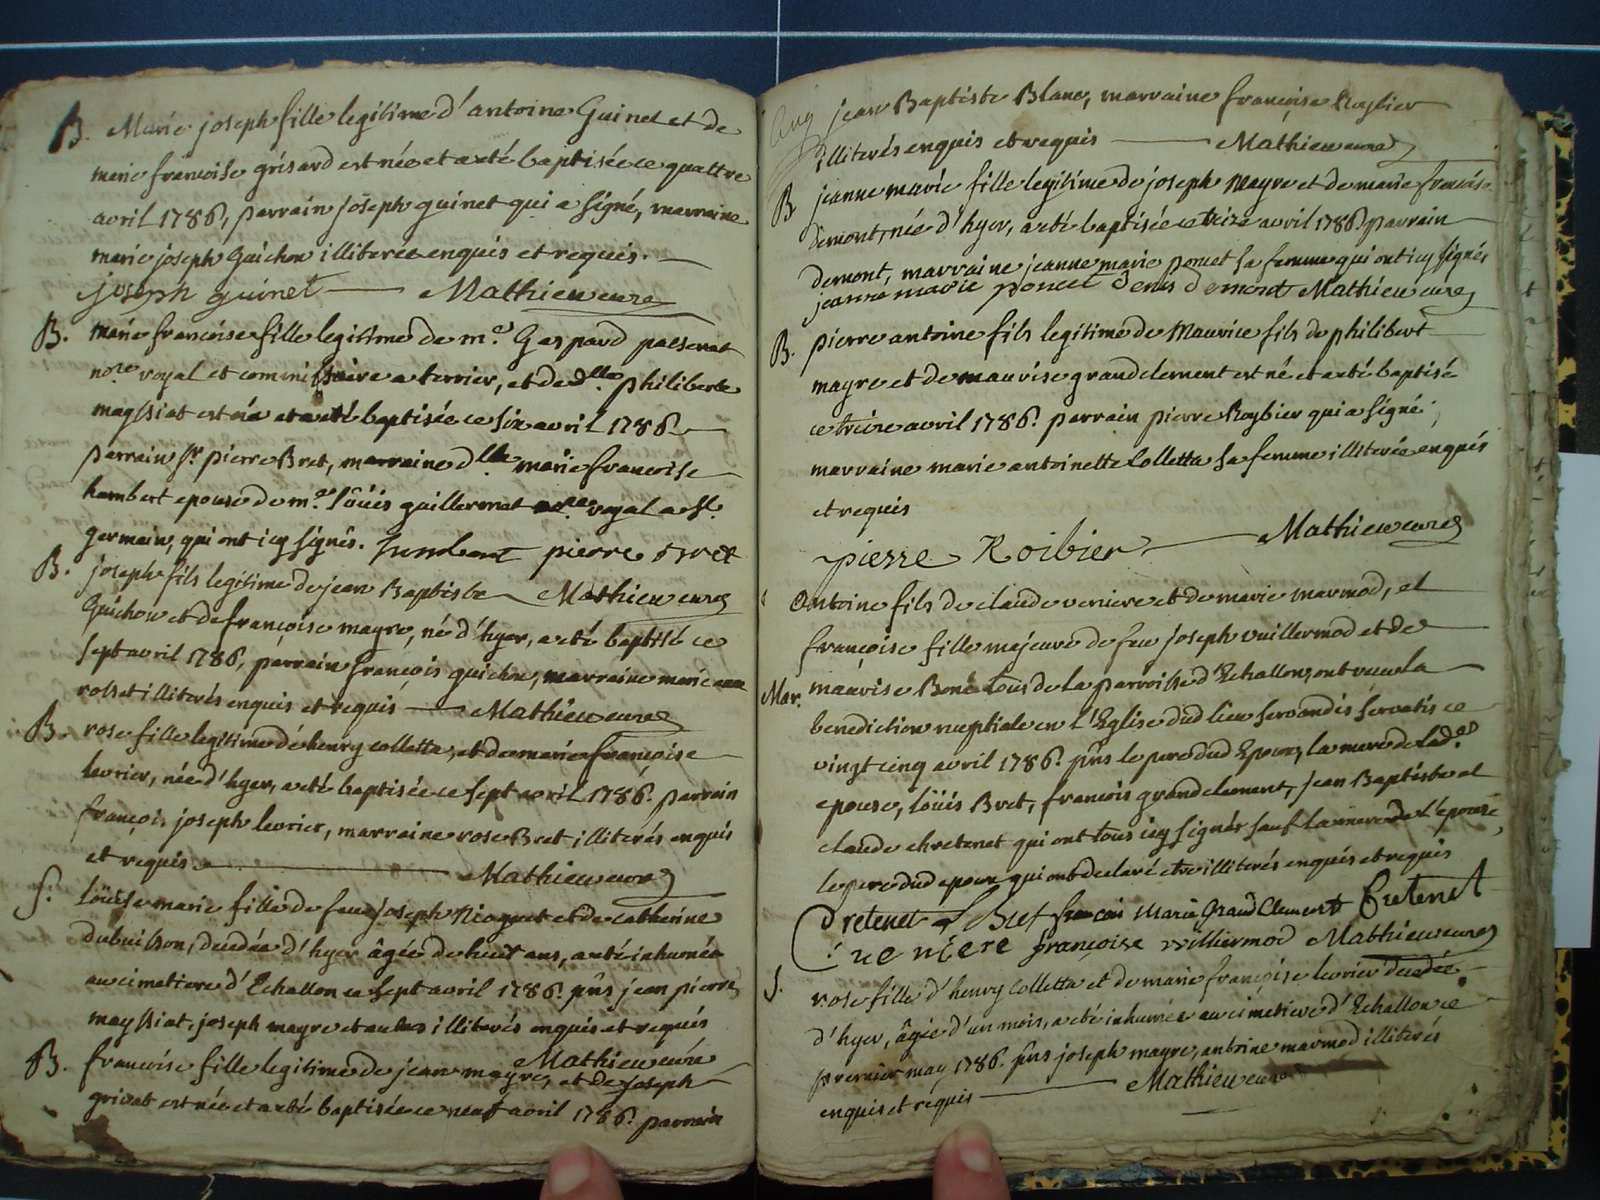 B. Marie joseph fille legitime d'antoine Guinet et de
marie francoise grisard est née et a eté baptisée ce quattre
avril 1786, parrain joseph guinet qui a signé, marraine
marie joseph Guichon illiterée enquis et requis.
joseph guinet Mathieu curé
B. marie francoise fille legitime de m.e Gaspard passerat
no.re royal et commissaire a terrier, et de d.lle philiberte
mayssiat est née et a eté baptisée ce six avril 1786
parrain sr pierre Bret, marraine d.lle marie francoise
humbert epouse de m.e loüis guillermet no.re royal a st.
germain, qui ont icy signés. humbert pierre Bret
B. joseph fils legitime de jean Baptiste Mathieu curé
Guichon et de françoise magre, né d'hyer, a eté baptisé ce
sept avril 1786, parrain françois guichon, marraine marie
rosset illiterés enquis et requis Mathieu curé
B. rose fille legitime de henry colletta, et de marie françoise
levrier, née d'hyer, a eté baptisée ce sept avril 1786. parrain
françois joseph levrier, marraine rose Bret illiterés enquis
et requis Mathieu curé
S. loüise marie fille de feu joseph Nicquet et de catherine
dubuisson, decedée d'hyer âgée de huit ans, a eté inhumée
au cimetiere d'Echallon ce sept avril 1786. pñs jean pierre
mayssiat, joseph magre et autres illiterés enquis et requis
Mathieu curé
B. francoise fille legitime de jean mayre, et de joseph
grivat est née et a eté baptisée ce neuf avril 1786. parrain
jean Baptiste Blanc, marraine françoise Roybier
illiterés enquis et requis Mathieu curé
B jeanne marie fille legitime de joseph mayre et de marie francoise
demont, née d'hyer, a eté baptisée ce treize avril 1786. parrain
demont, marraine jeanne marie poncet sa femme qui ont icy signés
jeanne marie poncet denis demont Mathieu curé
B. pierre antoine fils legitime de Maurice fils de philibert
magre et de maurise grandclement est né et a eté baptisé
ce treize avril 1786. parrain pierre Roybier qui a signé,
marraine marie antoinette Colletta sa femme illiterée enquis
et requis
pierre Roibier Mathieu curé
Antoine fils de claude veniere et de marie marmod, et
françoise fille majeure de feu joseph vuillermod et de
Mar. maurise Bone tous de la parroisse d'Echallon, ont receu la
benediction nuptiale en l'Eglise dud lieu servandis servatis ce
vingt cinq avril 1786. pñs le pere dud Epoux, la mere de lad.e
epouse, loüis Bret, francois grandclement, jean Baptiste et
claude chretenet qui ont tous icy signés sauf la mere de l'epouse,
le pere dud epoux qui ont declaré etre illiterés enquis et requis
Cretenet L Bret francois Marie Grand Clement Cretenet
françoise williermod Mathieu curé
S. rose fille d'henry Colletta et de marie françoise levrier decedée
d'hyer, âgée d'un mois, a eté inhumée au cimetiere d'Echallon ce
premier may 1786. pñs joseph mayre, antoine marmod illiterés
enquis et requis Mathieu curé